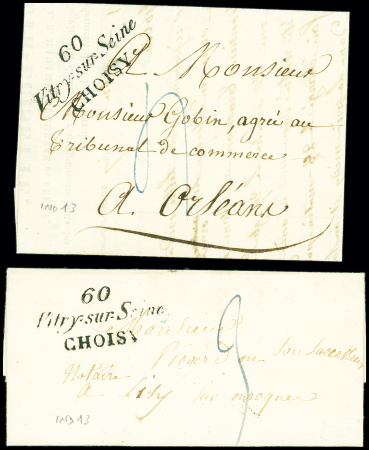 60
Vitry-sur-Seine
CHOISY
A Monsieur
Monsieur Gobin, agréé au
Tribunal de commerce
A Orléans
IND 13
60
Vitry-sur-Seine
CHOISY
Monsieur
ou son Successeur
Notaire
A Lisy sur ourcq
IND 13